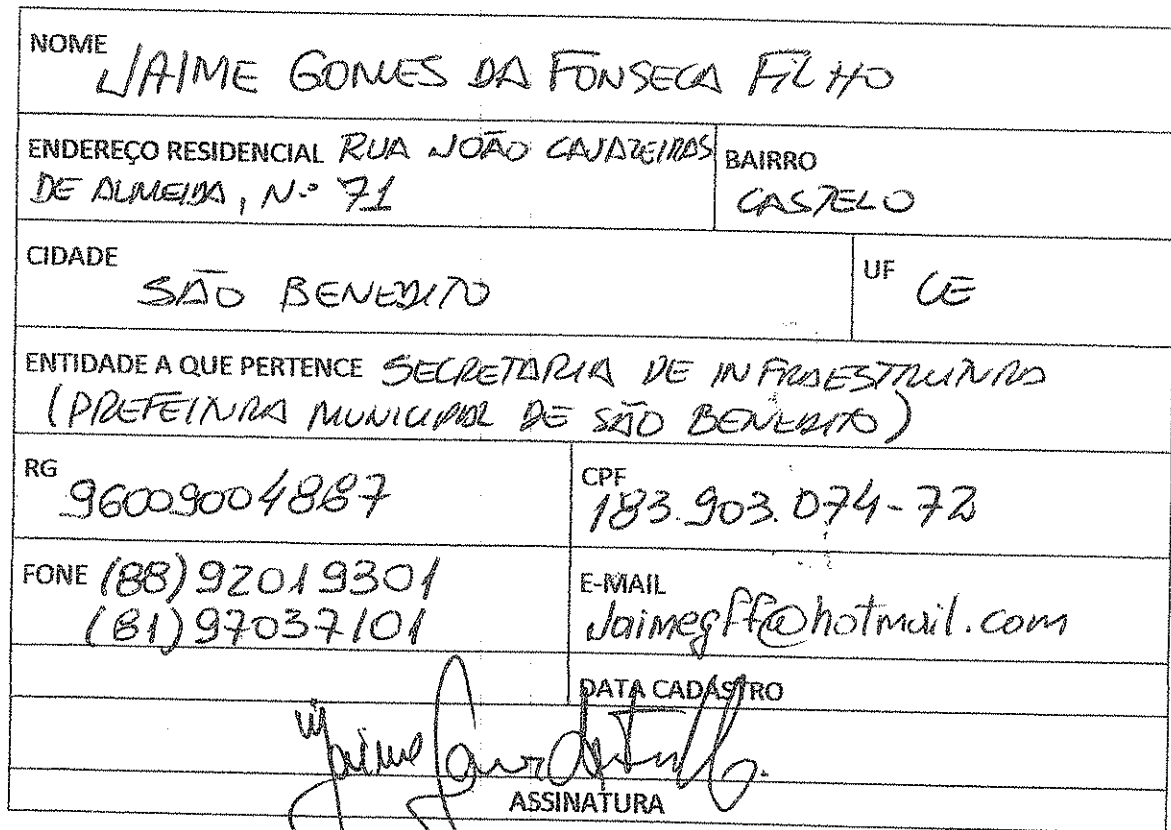 NOME
JAIME GOMES DA FONSECA FILHO
ENDEREÇO RESIDENCIAL RUA JOÃO CAJAZEIRAS
DE ALMEIDA, N.º 71
BAIRRO
CASTELO
CIDADE
SÃO BENEDITO
UF CE
ENTIDADE A QUE PERTENCE SECRETARIA DE INFRAESTRUTURA
(PREFEITURA MUNICIPAL DE SÃO BENEDITO)
RG
96009004887
CPF
183.903.074-72
FONE (88) 92019301
(81) 97037101
E-MAIL
Jaimegff@hotmail.com
DATA CADASTRO
Jaime
ASSINATURA